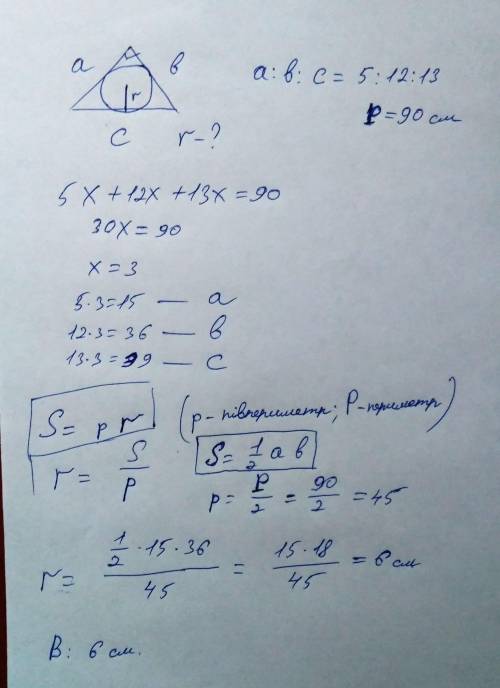 a в a:в:c = 5:12:13
r P=90 см
c r-?
5x+12x+13x=90
30x=90
x=3
5·3=15 — a
12·3=36 — в
13·3=39 — c
S= pr (p- півпериметр; P-периметр)
r= S/p S= 1/2 a в
p= P/2 = 90/2 =45
r= (1/2·15·36)/45 = (15·18)/45 =6см
В: 6 см.